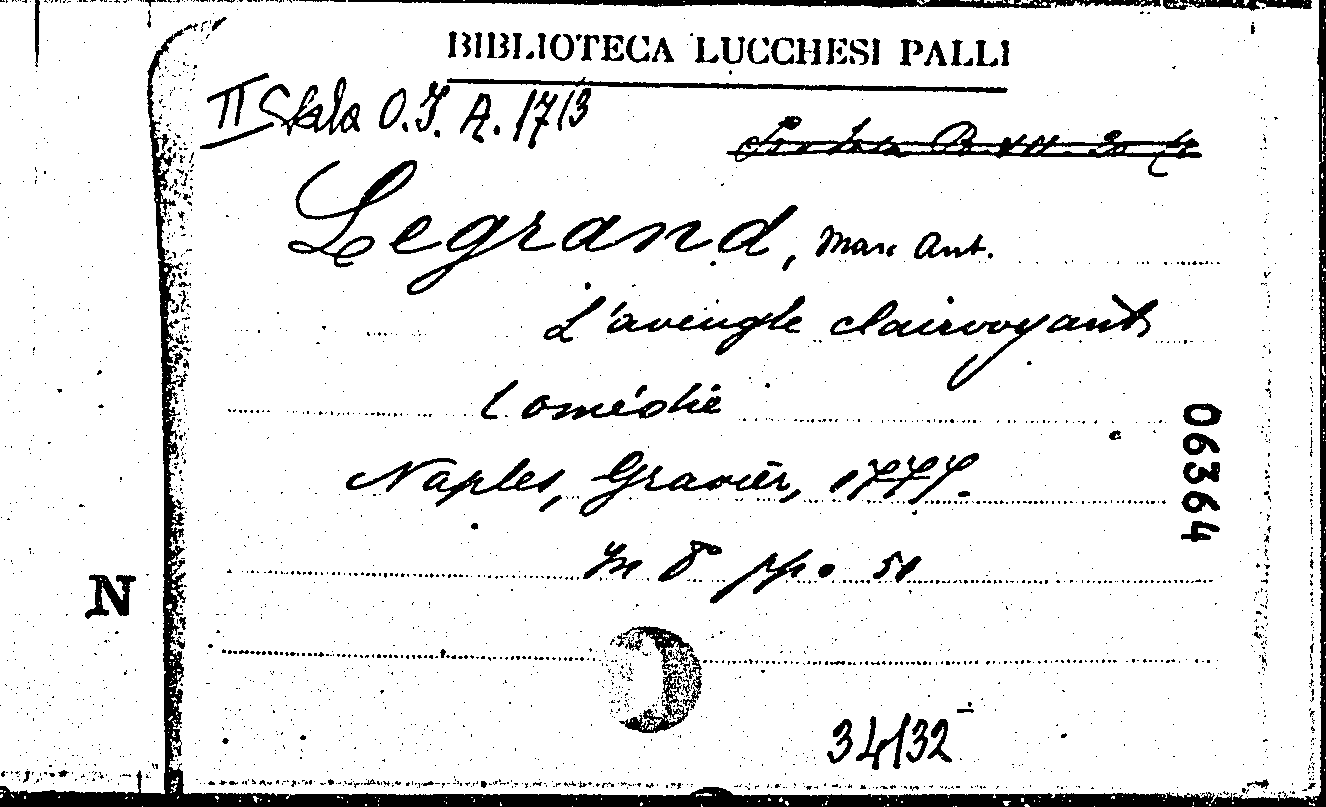 BIBLIOTECA LUCCHESI PALLI
II Scala O.I. A. 17/3
Legrand, Marc Ant.
L'aveugle clairvoyant
Comédie
Naples, Gravier, 1777.
In 8° pp. 51
06364
N
34/32